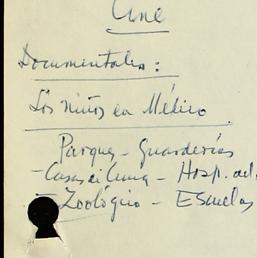 Cine
Documentales:
Los niños en México
Parques - Guarderías
- Casas de Cuna - Hosp. del
- Zoológico - Escuelas